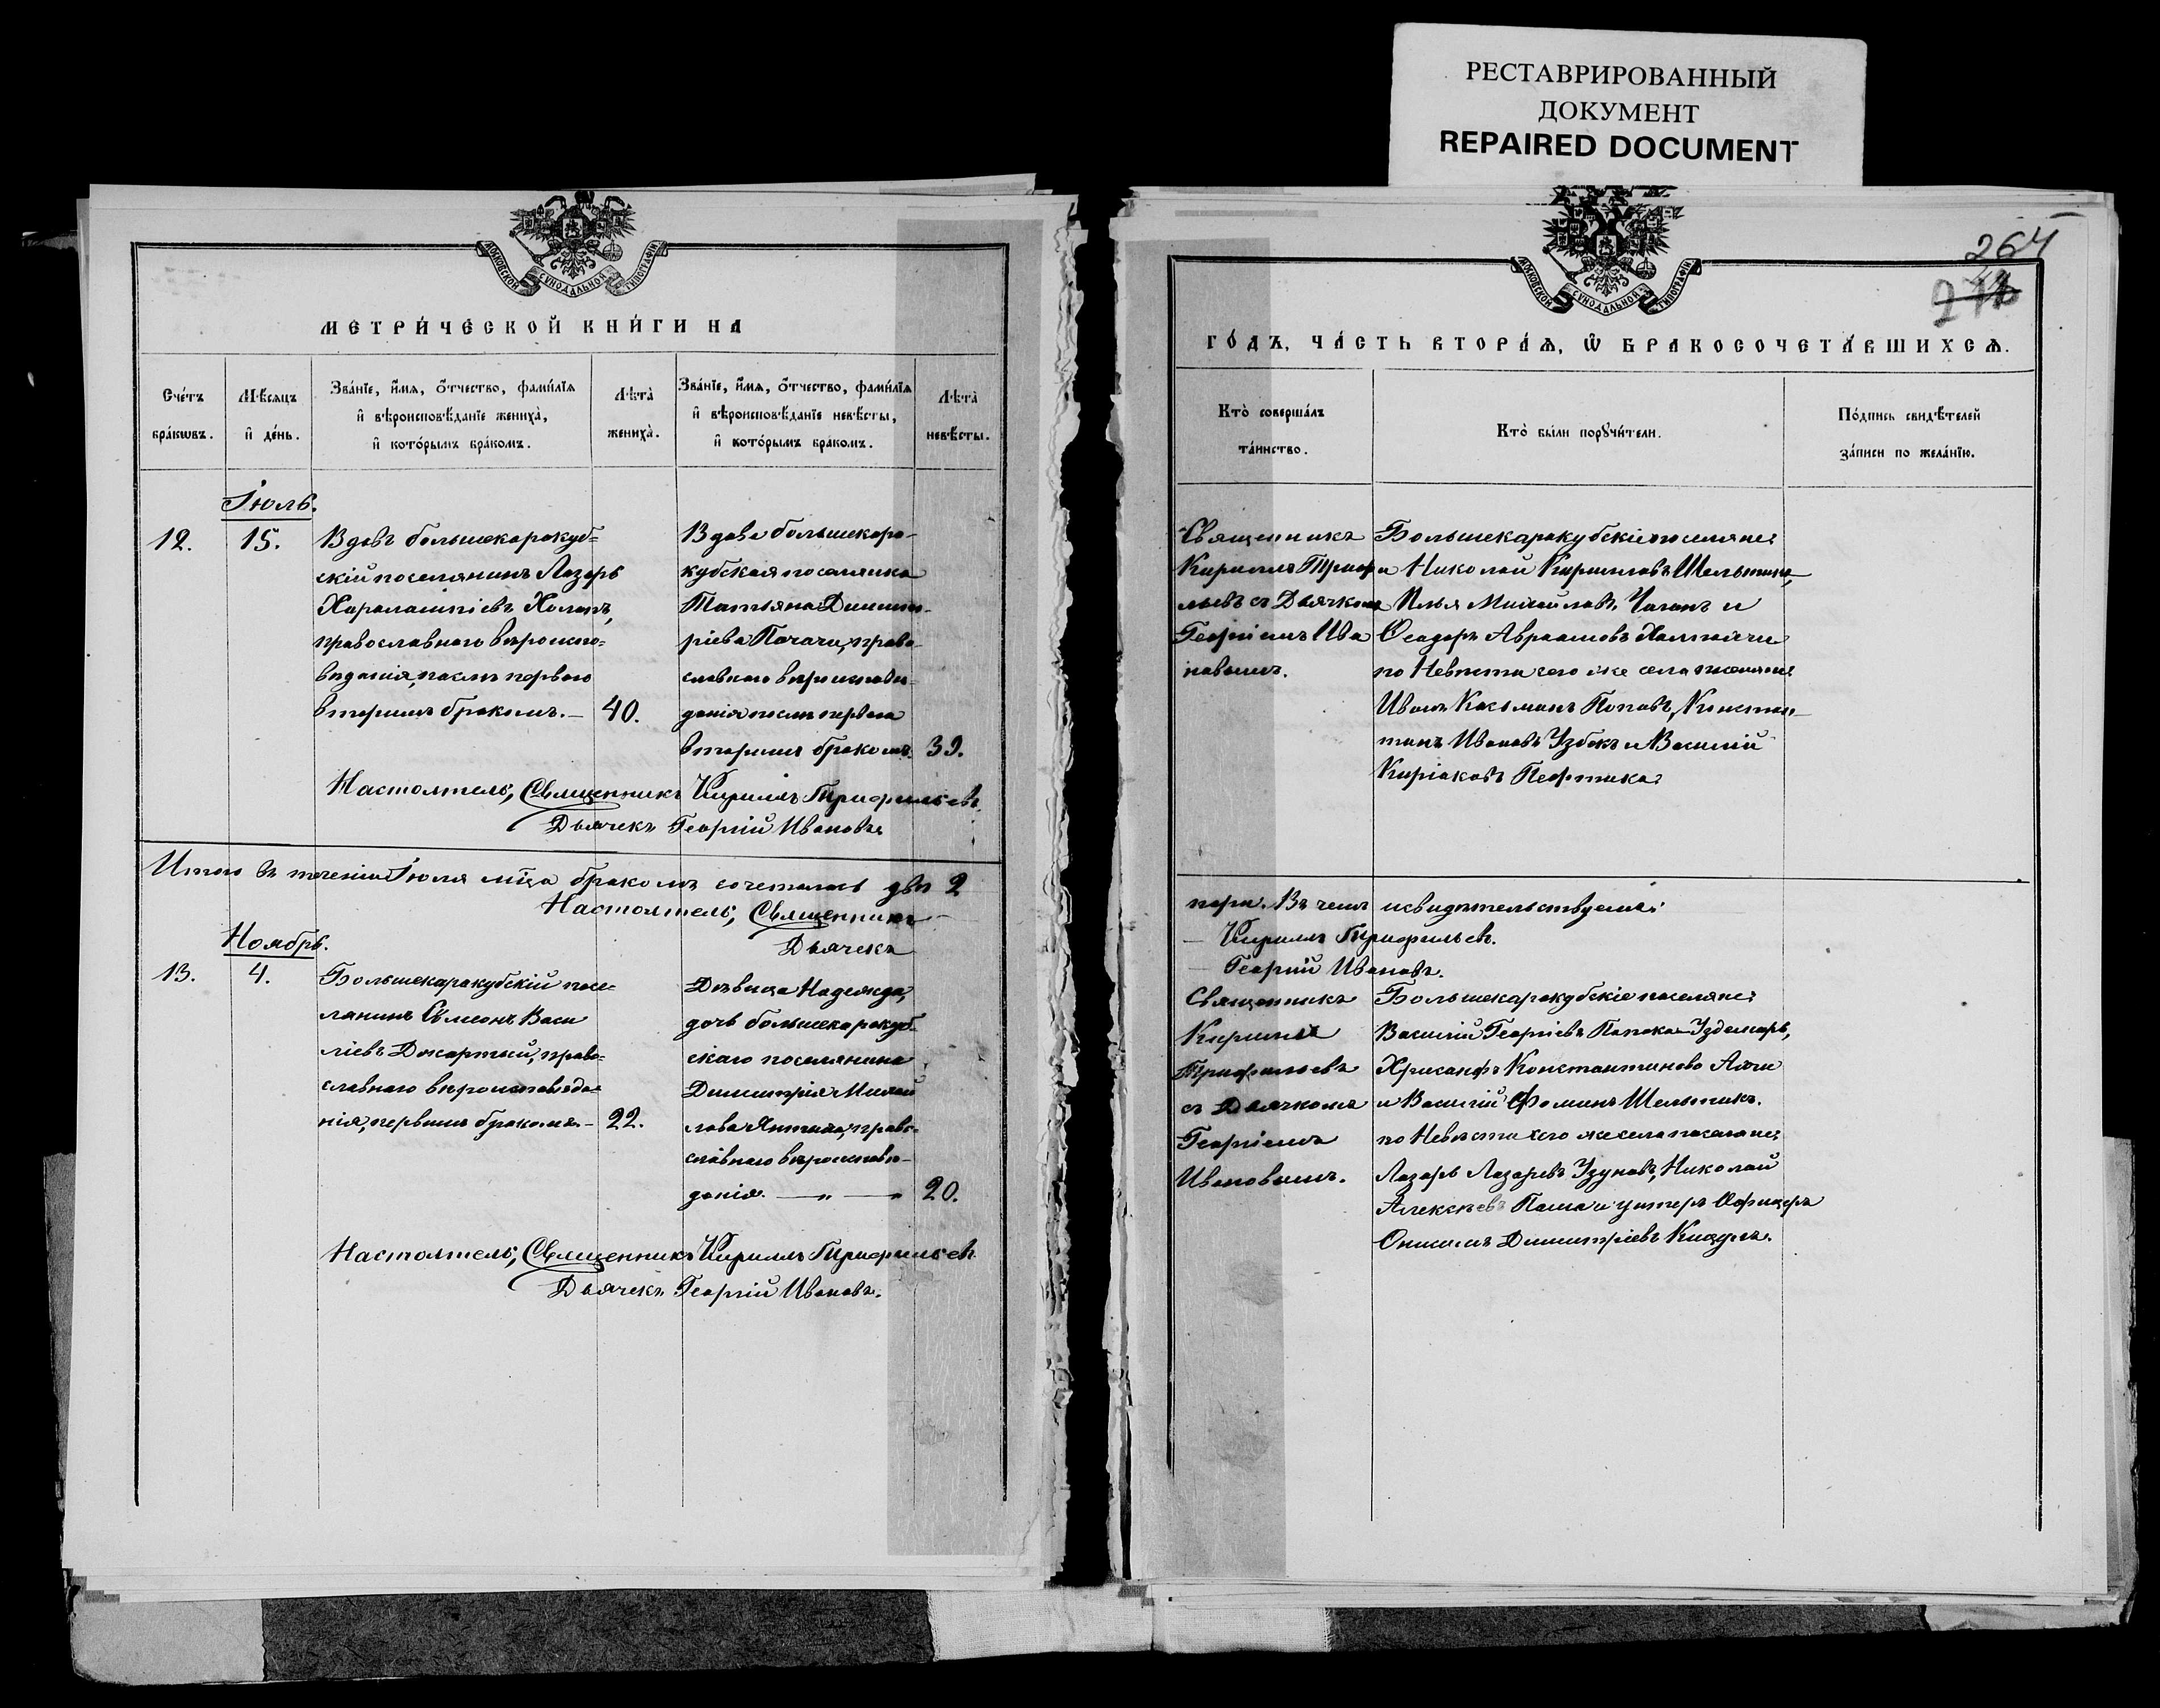 РЕСТАВРИРОВАННЫЙ
ДОКУМЕНТ
REPAIRED DOCUMENT
МОСКОВСКОЙ СѴНОДАЛЬНОЙ ТИПОГРАФІИ
МЕТРИ́ЧЕСКОЙ КНИ́ГИ НА
Сче́тъ бра́кѡвъ.
Мѣ́сяцъ и҆ де́нь.
Зва́нїе, и҆́мѧ, ѻ҆́тчество, фами́лїѧ
и҆ вѣроисповѣ́данїе жениха̀,
и҆ кото́рымъ бра́комъ.
Лѣта̀ жениха̀.
Зва́нїе, и҆́мѧ, ѻ҆́тчество, фами́лїѧ
и҆ вѣроисповѣ́данїе невѣ́сты,
и҆ кото́рымъ бра́комъ.
Лѣта̀ невѣ́сты.
Іюль.
12.
15.
Вдовъ большекаракуб=
скій поселянинъ Лазарь
Харалампіевъ Холапъ,
православнаго вѣроиспо=
веданія, послѣ перваго
вторымъ бракомъ. —
40.
Вдова большекара-
кубская поселянка
Татьяна Димит-
ріева Почачи, право-
славнаго вѣроисповѣ-
данія послѣ перваго
вторымъ бракомъ.
39.
Настоятель, Священникъ Кириллъ Трифильевъ.
Дьячекъ Георгій Ивановъ.
Итого въ теченіи Іюля мѣца бракомъ сочеталось двѣ 2
Настоятель, Священникъ
Дьячекъ
Ноябрь.
13.
4.
Большекаракубскій посе=
лянинъ Симеонъ Васи
ліевъ Джартый, право=
славнаго вѣроисповѣда=
нія, первымъ бракомъ. —
22.
Дѣвица Надежда,
дочь большекаракуб-
скаго поселянина
Димитрія Михай
лова Янтика, право-
славнаго вѣроисповѣ-
данія. — „ — „
20.
Настоятель, Священникъ Кириллъ Трифильевъ
Дьячекъ Георгій Ивановъ.
264
МОСКОВСКОЙ СѴНОДАЛЬНОЙ ТИПОГРАФІИ
ГО́ДЪ, ЧА́СТЬ ВТОРА́Ѧ, Ѡ҆ БРАКОСОЧЕТА́ВШИХСѦ.
Кто̀ соверша́лъ
та́инство.
Кто̀ бы́ли порꙋчи́тели.
По́дпись свидѣ́телей
за́писи по жела́нїю.
Священникъ
Кириллъ Трифи
льевъ съ Дьячкомъ
Георгіемъ Ива
новымъ.
Большекаракубскіе поселяне:
Николай Кирилловъ Шельтикъ,
Илья Михайловъ Чаганъ и
Ѳеодоръ Авраамовъ Халпахчи
по Невѣстѣ того же села поселяне:
Иванъ Касьмановъ Поповъ, Констан-
тинъ Ивановъ Узбекъ и Василій
Киріаковъ Пефтика.
пары. Въ чемъ и свидѣтельствуемъ:
— Кириллъ Трифильевъ.
— Георгій Ивановъ.
Священникъ
Кириллъ
Трифильевъ
съ Дьячкомъ
Георгіемъ
Ивановымъ.
Большекаракубскіе поселяне:
Василій Георгіевъ Папака-Уздемаръ,
Хрисанфъ Константиновъ Аичи
и Василій Фоминъ Шельтикъ.
по Невѣстѣ того же села поселяне:
Лазарь Лазаревъ Узуновъ, Николай
Алексѣевъ Паша и унтеръ Офицеръ
Онисимъ Димитріевъ Киадръ.